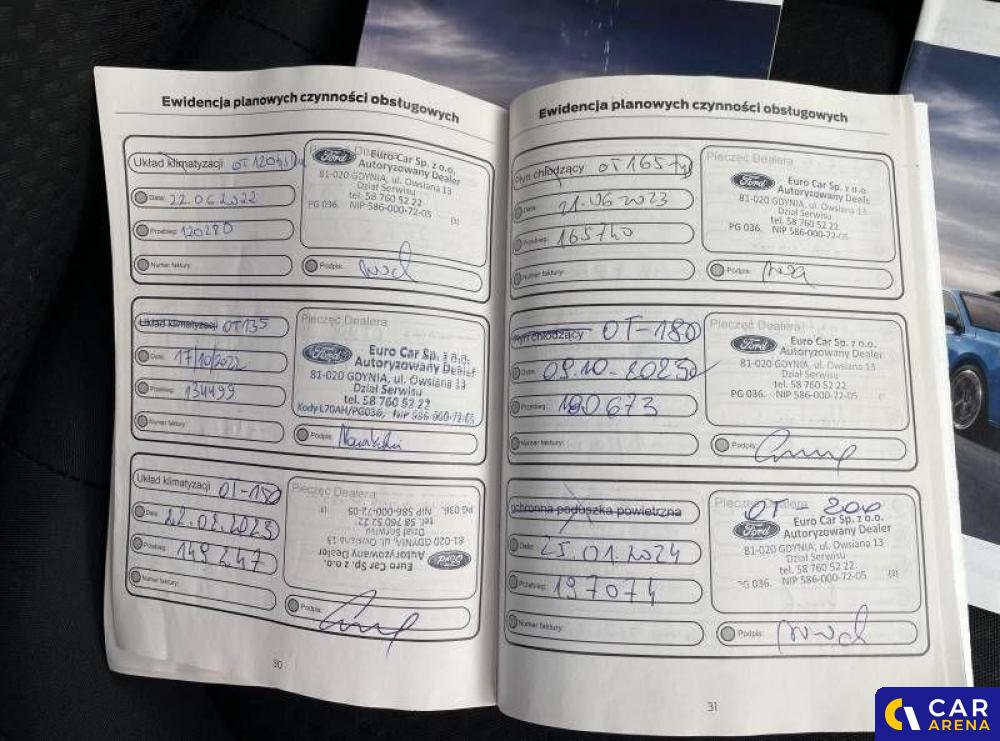 Ewidencja planowych czynności obsługowych
Układ klimatyzacji OT 120
Data: 22.06.2022
Przebieg: 120280
Numer faktury:
Pieczęć Dealera
Ford Euro Car Sp. z o.o.
Autoryzowany Dealer
81-020 GDYNIA, ul. Owsiana 13
Dział Serwisu
tel. 58 760 52 22
PG 036. NIP 586-000-72-05 (3)
Podpis:
Układ klimatyzacji OT 135
Data: 17/10/2022
Przebieg: 134499
Numer faktury:
Pieczęć Dealera
Ford Euro Car Sp. z o.o.
Autoryzowany Dealer
81-020 GDYNIA, ul. Owsiana 13
Dział Serwisu
tel. 58 760 52 22
Kody L70AH/PG036, NIP 586-000-72-05
Podpis:
Układ klimatyzacji OT-150
Data: 22.02.2023
Przebieg: 149247
Numer faktury:
Pieczęć Dealera
Ford Euro Car Sp. z o.o.
Autoryzowany Dealer
81-020 GDYNIA, ul. Owsiana 13
Dział Serwisu
tel. 58 760 52 22
PG 036. NIP 586-000-72-05
Podpis:
30
Ewidencja planowych czynności obsługowych
Płyn chłodzący OT 165
Data: 21.06.2023
Przebieg: 165740
Numer faktury:
Pieczęć Dealera
Ford Euro Car Sp. z o.o.
Autoryzowany Deale
81-020 GDYNIA, ul. Owsiana 13
Dział Serwisu
tel. 58 760 52 22
PG 036. NIP 586-000-72-05
Podpis:
Płyn chłodzący OT-180
Data: 09.10.2023
Przebieg: 180673
Numer faktury:
Pieczęć Dealera
Ford Euro Car Sp. z o.o.
Autoryzowany Dealer
81-020 GDYNIA, ul. Owsiana 13
Dział Serwisu
tel. 58 760 52 22
PG 036. NIP 586-000-72-05
Podpis:
ochronna poduszka powietrzna
Data: 25.01.2024
Przebieg: 197074
Numer faktury:
Pieczęć Dealera OT 200
Ford Euro Car Sp. z o.o.
Autoryzowany Dealer
81-020 GDYNIA, ul. Owsiana 13
Dział Serwisu
tel. 58 760 52 22
PG 036. NIP 586-000-72-05 (3)
Podpis:
31
CAR
ARENA